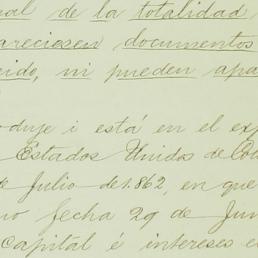 al de la totalidad,
areciesen documentos
cido, ni pueden apa
duje i está en el exp
Estados Unidos de Co
de Julio de 1.862, en que
no fecha 29 de Jun
capital é intereses e